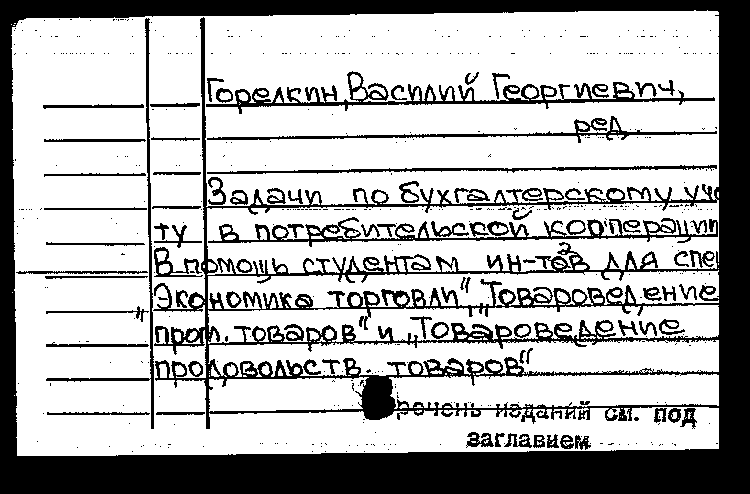 Горелкин, Василий Георгиевич,
ред.
Задачи по бухгалтерскому уче
ту в потребительской кооперации
В помощь студентам ин-тов для спец
"Экономика торговли", "Товароведение
пром. товаров" и "Товароведение
продовольств. товаров"
речень изданий см. под
заглавием